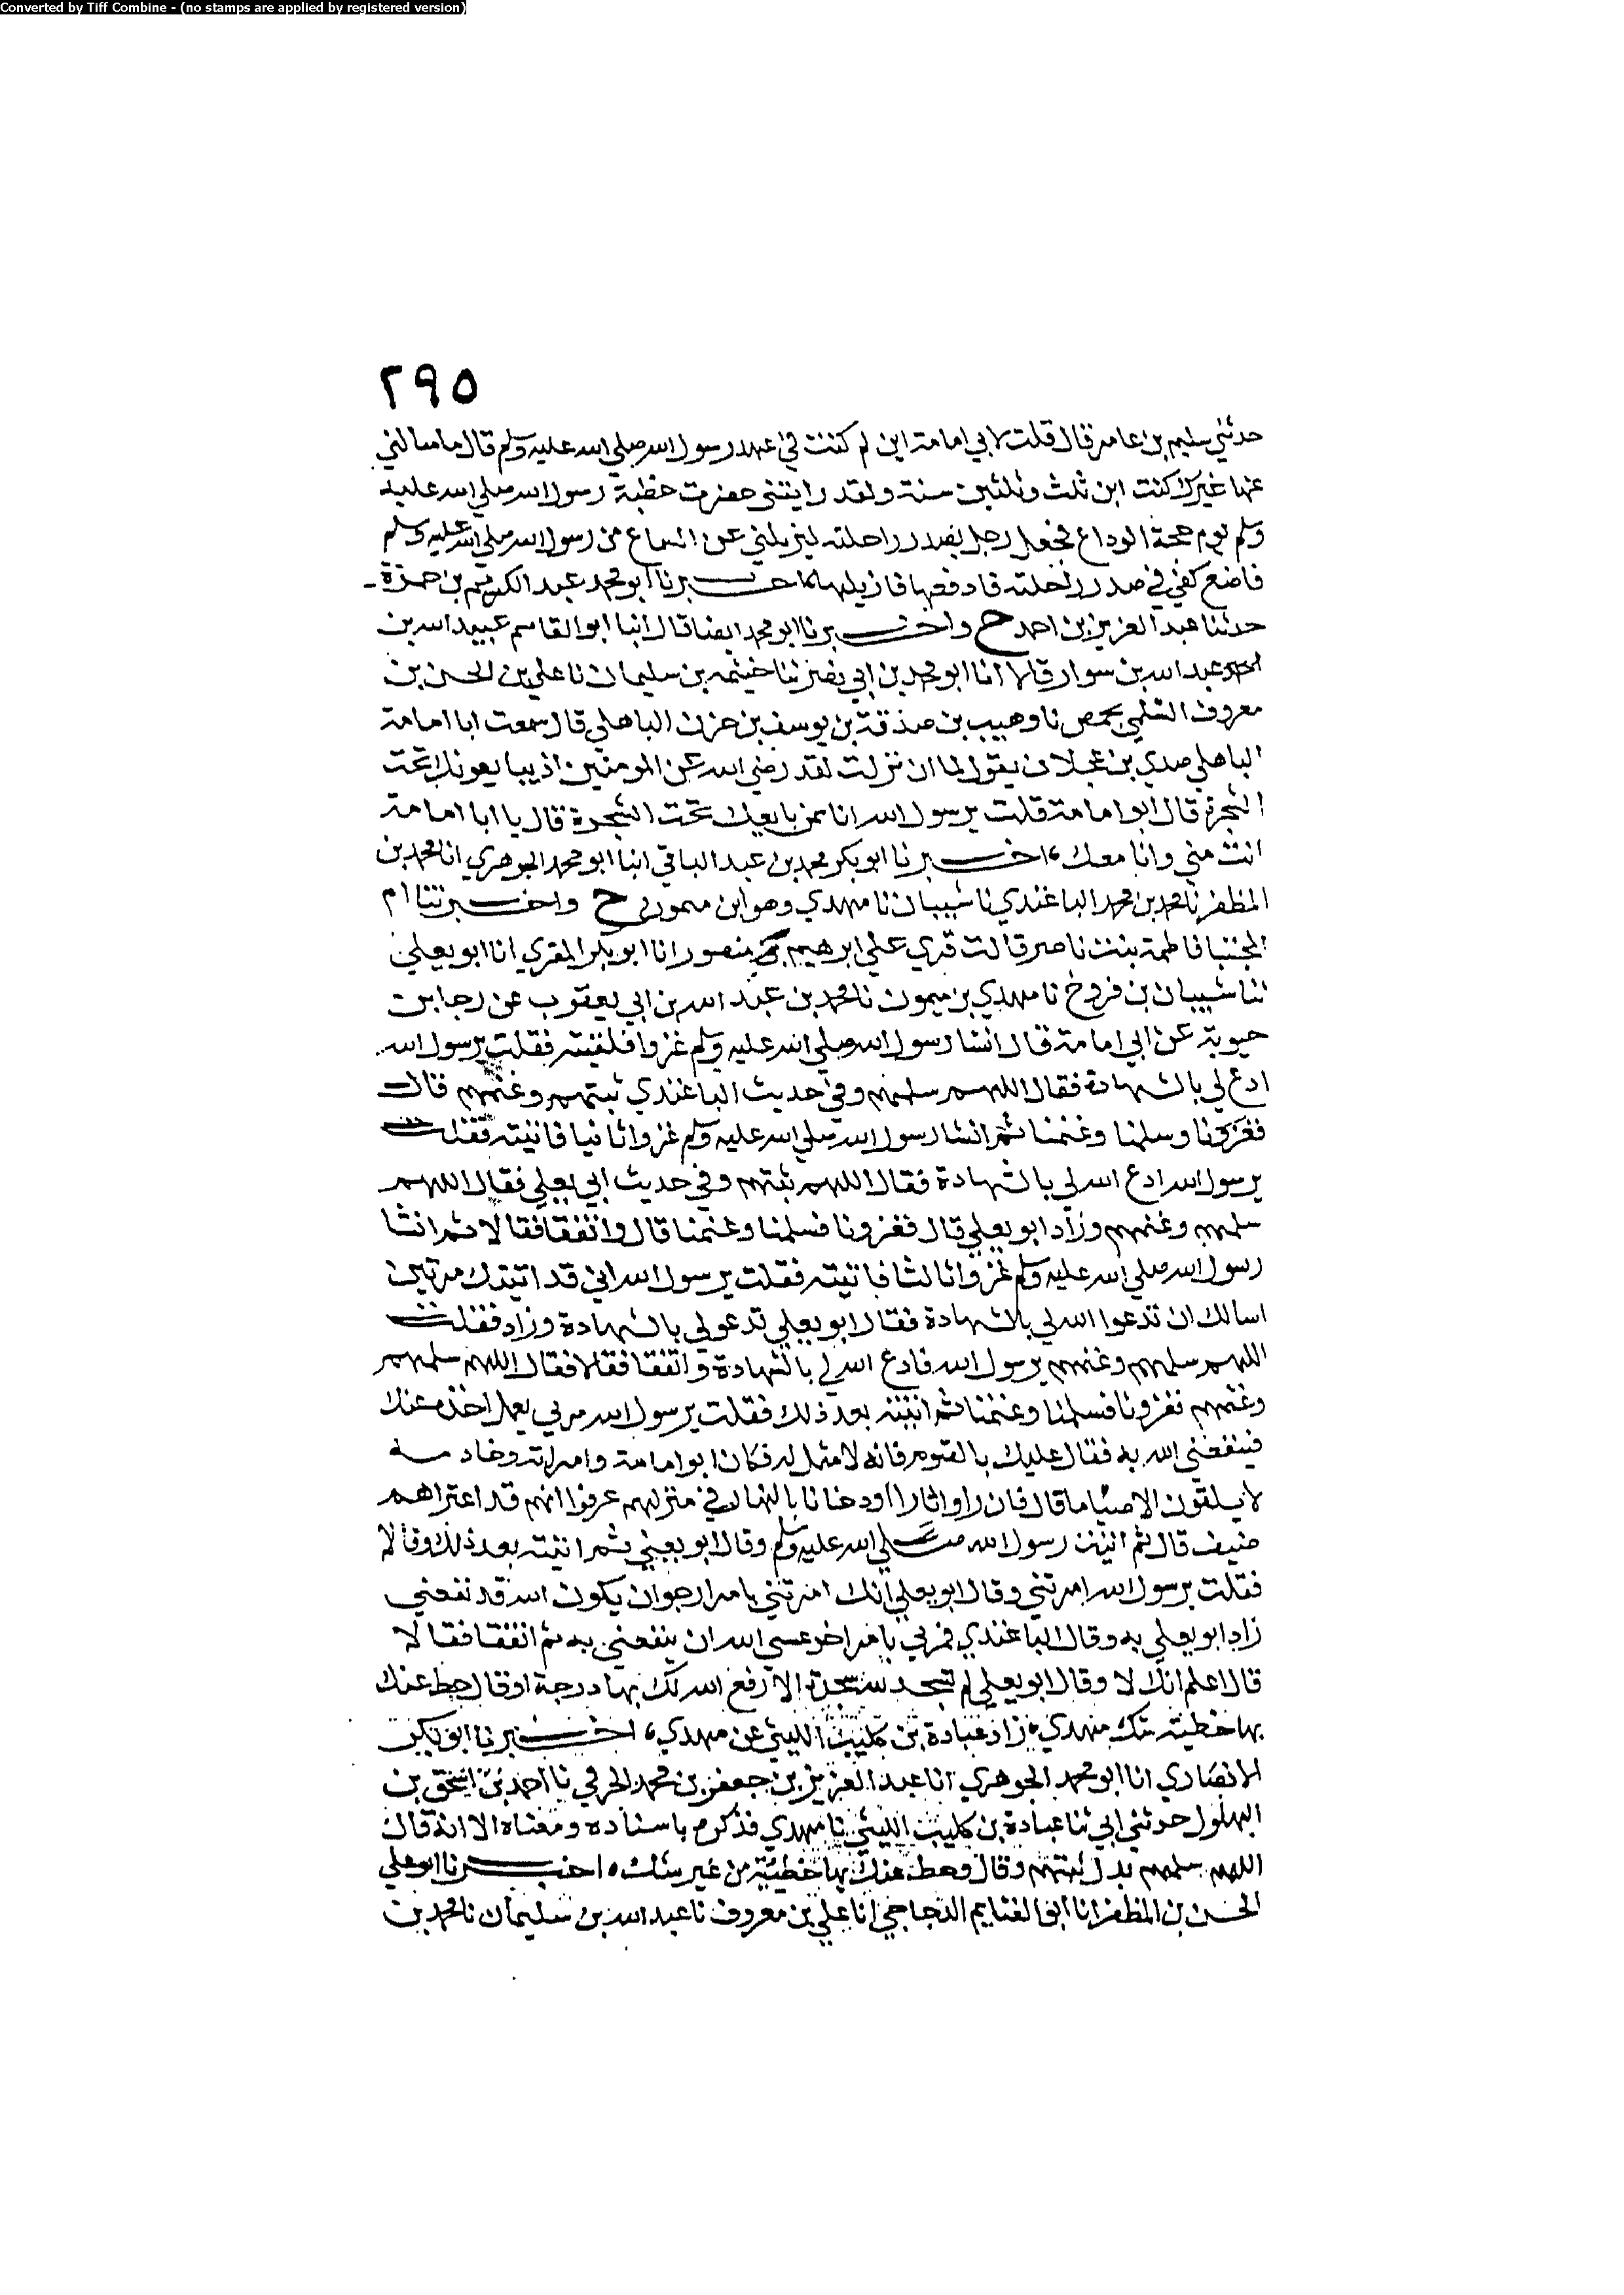 Converted by Tiff Combine - (no stamps are applied by registered version)
٢٩٥
حدثني سليم بن عامر قال قلت لابي امامة ابن لم كنت في عهد رسول الله صلى الله عليه وسلم قال ما سالني
عنها غيرك كنت ابن ثلث وثلثين سنة ولقد رايتني حضرت خطبة رسول الله صلى الله عليه
وسلم يوم حجة الوداع فجعل رجل بصدر راحلته ليزيلني عن السماع من رسول الله صلى الله عليه وسلم
فاضع كفي في صدر راحلته فادفعها فازيلها اخبرنا ابو محمد عبد الكريم بن حمزة
حدثنا عبد العزيز بن احمد ح واخبرنا ابو محمد ايضا قال انبا ابو القاسم عبيد الله بن
احمد عبد الله بن سوار قالا انا ابو محمد بن ابي نصر ثنا خيثمه بن سليمان نا علي بن الحسن بن
معروف السلمي بحمص نا وهيب بن صدقة بن يوسف بن حزن الباهلي قال سمعت ابا امامة
الباهلي صدي بن عجلان يقول لما ان نزلت لقد رضي الله عن المومنين اذ يبايعونك تحت
الشجرة قال ابو امامة قلت يرسول الله انا ممن بايعك تحت الشجرة قال يا ابا امامة
انت مني وانا معك اخبرنا ابو بكر محمد بن عبد الباقي انبا ابو محمد الجوهري انا محمد بن
المظفر نا محمد بن محمد الباغندي نا شيبان نا مهدي وهو ابن ميمون ح واخبرتنا ام
المجتبا فاطمة بنت ناصر قالت قري على ابرهيم بن منصور انا ابو بكر المقري انا ابو يعلى
ثنا شيبان بن فروخ نا مهدي بن ميمون نا محمد بن عبد الله بن ابي يعقوب عن رجا بن
حيوية عن ابي امامة قال انشا رسول الله صلى الله عليه وسلم غزوا فلقيته فقلت يرسول الله
ادع لي بالشهادة فقال اللهم سلمهم وفي حديث الباغندي ثبتهم وغنمهم قال
فغزونا وسلمنا وغنمنا ثم انشا رسول الله صلى الله عليه وسلم غزوا ثانيا فاتيته فقلت
يرسول الله ادع الله لي بالشهادة فقال اللهم ثبتهم وفي حديث ابي يعلى فقال اللهم
سلمهم وغنمهم وزاد ابو يعلى قال فغزونا فسلمنا وغنمنا قال واتفقا فقالا ثم انشا
رسول الله صلى الله عليه وسلم غزوا ثالثا فاتيته فقلت يرسول الله اني قد اتيتك مرتين
اسالك ان تدعوا الله لي بالشهادة فقال ابو يعلى تدعو لي بالشهادة وزاد فقلت
اللهم سلمهم وغنمهم يرسول الله فادع الله لي بالشهادة واتفقا فقالا فقال اللهم سلمهم
وغنمهم فغزونا فسلمنا وغنمنا ثم اتيته بعد ذلك فقلت يرسول الله مرني بعمل اخذه عنك
فينفعني الله به فقال عليك بالصوم فانه لا مثل له فكان ابو امامة وامراته وخادمه
لا يلقون الا صياما قال فان راوا نارا او دخانا بالنهار في منزلهم عرفوا انهم قد اعتراهم
ضيف قال ثم اتيت رسول الله صلى الله عليه وسلم وقال ابو يعلى ثم اتيته بعد ذلك وقالا
فقلت يرسول الله امرتني وقال ابو يعلى انك امرتني بامر ارجو ان يكون الله قد نفعني
زاد ابو يعلى به وقال الباغندي فمرني بامر اخر عسى الله ان ينفعني به ثم اتفقا فقالا
قال اعلم انك لا وقال ابو يعلى لم تسجد سجدة الا رفع الله لك بها درجة او قال حط عنك
بها خطية شك مهدي زاد عبادة بن كليب الليثي عن مهدي اخبرنا ابو بكر
الانصاري انا ابو محمد الجوهري انا عبد العزيز بن جعفر بن محمد الخرقي نا احمد بن اسحق بن
البهلول حدثني ابي ثنا عبادة بن كليب الليثي نا مهدي فذكرم باسناده ومعناه الا انه قال
اللهم سلمهم بدل ثبتهم وقال وحط عنك بها خطيئة من غير شك اخبرنا ابو علي
الحسن بن المظفر انا ابو الغنايم الدجاجي انا علي بن معروف نا عبد الله بن سليمان نا محمد بن